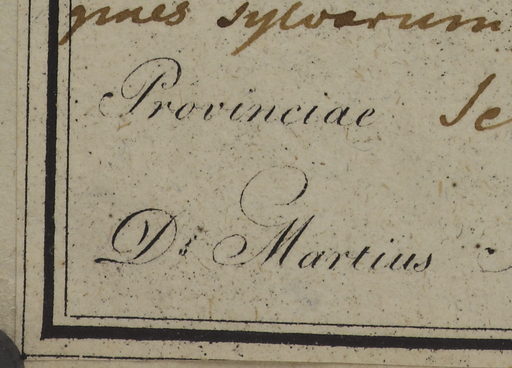 sylvarum
Provinciae Se
Dr Martius